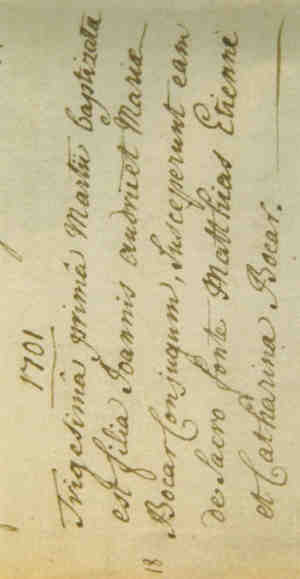 1701
Trigesimâ primâ Martii baptizata
est filia Joannis Audriet Mariæ
Bocar Conjugum, Susceperunt eam
de Sacro fonte Matthias Etienne
et Catharina Bocar.
18